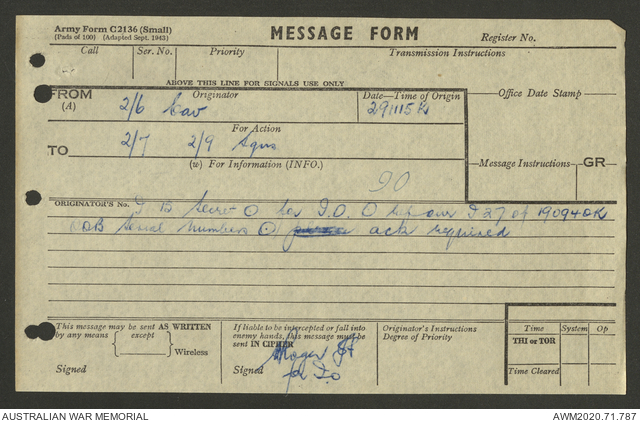 Army Form C2136 (Small)
(Pads of 100) (Adapted Sept. 1943)
MESSAGE FORM
Register No.
Call Ser. No. Priority Transmission Instructions
ABOVE THIS LINE FOR SIGNALS USE ONLY
FROM
(A)
Originator
2/6 Cav
Date—Time of Origin
291115K
Office Date Stamp
For Action
TO 2/7 2/9 Sqns
(w) For Information (INFO.)
Message Instructions GR
90
ORIGINATOR'S No. I 13 Secret O for I.O. O our I 27 of 190940K
serial numbers O ack required
This message may be sent AS WRITTEN
by any means except
Wireless
Signed
If liable to be intercepted or fall into
enemy hands, this message must be
sent IN CIPHER
Signed
for I.O
Originator's Instructions
Degree of Priority
Time System Op
THI or TOR
Time Cleared
AUSTRALIAN WAR MEMORIAL
AWM2020.71.787